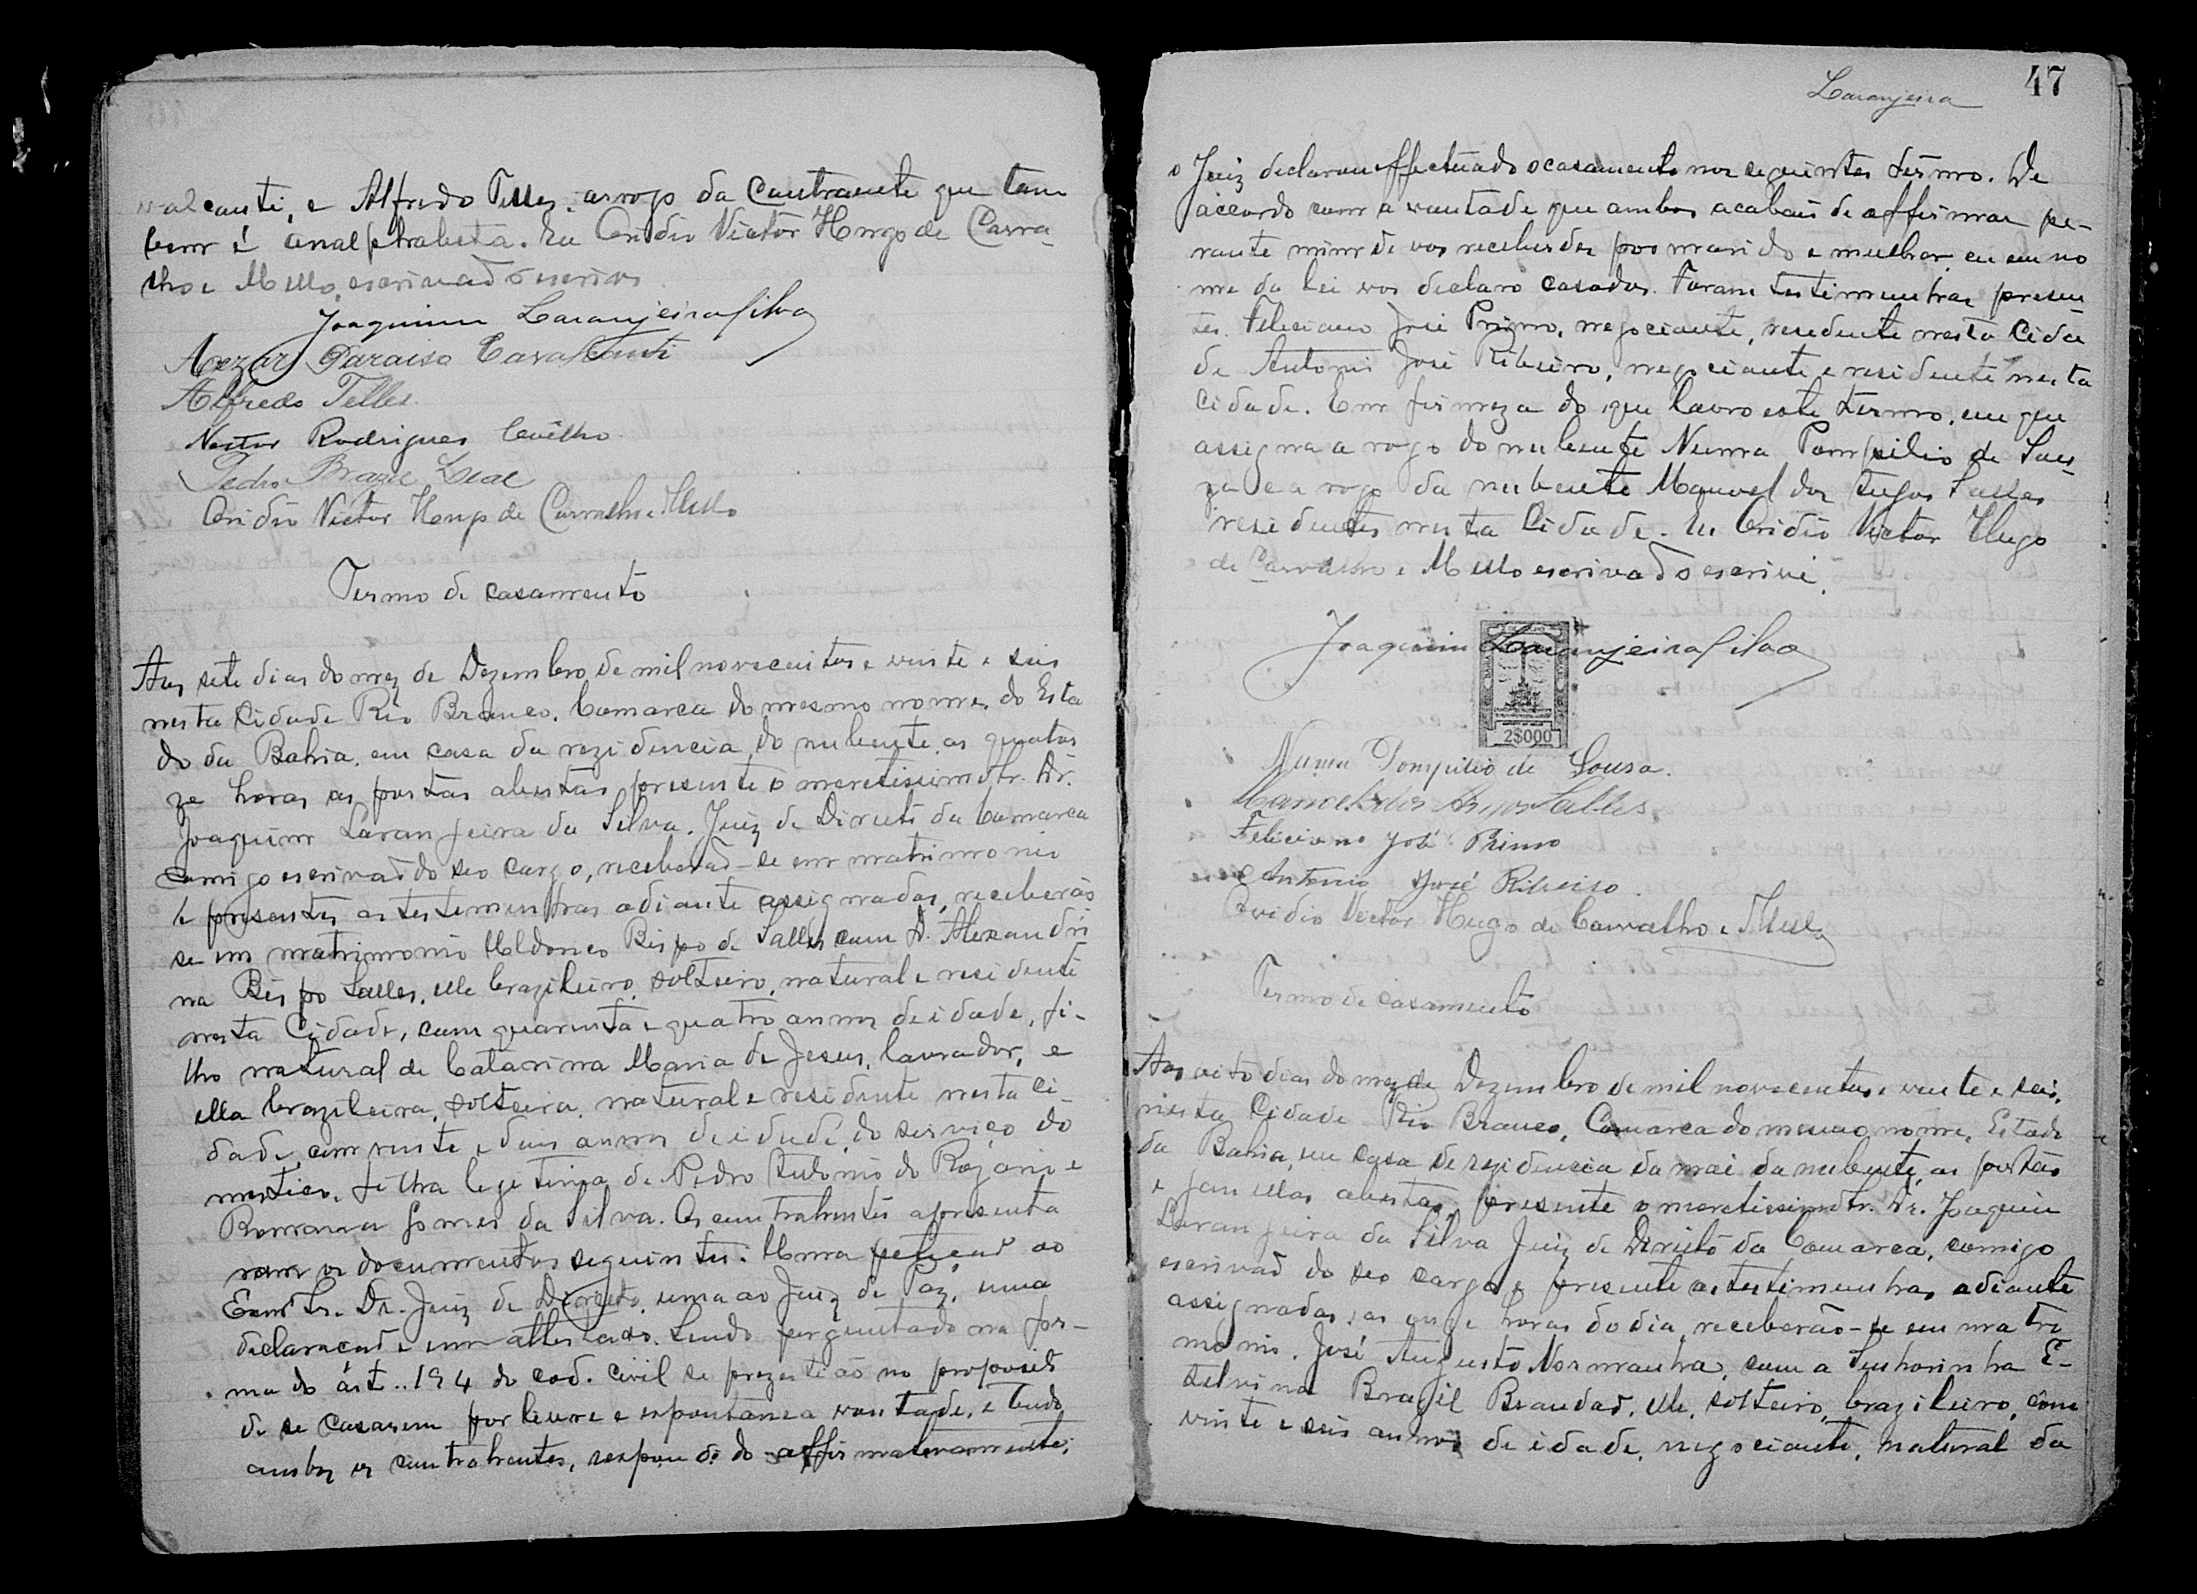 valcanti, e Alfredo Telles. a rogo da Contraente que tam
bem é analphabeta. Eu Ovidio Victor Hugo de Carva-
lho e Mello, escrivaõ o escrivi
Joaquim Laranjeira Silva
Cezar Paraiso Cavalcanti
Alfredo Telles.
Nestor Rodrigues Coêlho
Pedro Brazil Leal
Ovidio Victor Hugo de Carvalho e Mello
Termo de casamento
Aos sete dias do mez de Dezembro de mil novecentos e vinte e seis
nesta Cidade Rio Branco, Comarca do mesmo nome, do Esta
do da Bahia, em casa da rezidencia do nubente, as quator
ze horas, as portas abertas, presente o meretissimo Sr. Dr.
Joaquim Laranjeira da Silva. Juiz de Direito da Comarca
comigo escrivaõ do seo cargo, receberaõ-se em matrimonio
e presentes as testemunhas adiante assignadas, receberão
se em matrimonio Bispo de Salles com D. Alexandri
na Bispo Salles, elle brazileiro, solteiro, natural e residente
nesta Cidade, com quarenta e quatro annos de idade, fi-
lho natural de Catarina Maria de Jesus, lavrador, e
ella brazileira, solteira, natural e residente nesta Ci-
dade, com vinte e dois annos de idade, do serviço do
mestico, filha legitima de Pedro Antonio do Rozario e
Romana Gomes da Silva. Os contrahentes apresenta
ram os documentos seguintes: Uma petiçaõ ao
Exmº Sr. Dr. Juiz de Direito, uma ao Juiz de Paz, uma
declaraçaõ e um attestado. Sendo perguntado na for-
ma do art.. 194 do cod. civil se prezistiaõ no proposito
de se casarem por livre e espontanea vontade, e tendo
ambos os contrahentes, respondido affirmativamente,
Laranjeira
47
o Juiz declarou effectuado o casamento nos seguintes termo. De
accordo com a vontade que ambos acabais de affirmar pe-
rante mim de vos receberdes por marido e mulher, eu em no
me da lei vos declaro casados. Foram testimunhas presen
tes. Feliciano José Primo, negociante, residente nesta Cida
de Antonio José Ribeiro, negociante e residente nesta
Cidade. Em firmeza do que lavro este termo, em que
assigna a rogo do nubente Numa Pompilio de Sou-
za e a rogo da nubente Manoel dos Anjos Salles
residentes nesta Cidade. Eu Ovidio Victor Hugo
de Carvalho e Mello escrivaõ o escrivi.
Joaquim Laranjeira Silva
2$000
Numa Pompilio de Sousa.
Manoel dos Anjos Salles.
Feliciano José Primo
Antonio José Ribeiro.
Ovidio Victor Hugo de Carvalho e Mello
Termo de casamento
Aos oito dias do mez de Dezembro de mil novecentos e vinte e seis,
nesta Cidade Rio Branco, Comarca do mesmo nome, Estado
da Bahia, em casa de rezidencia da mai da nubente, as portas
e janellas abertas, presente o meretissimo Sr. Dr. Joaquim
Laranjeira da Silva Juiz de Direito da Comarca, comigo
escrivaõ do seo cargo, e presente as testimunhas adiante
assignadas, as onze horas do dia, receberão-se em matri
monio. José Augusto Normanha, com a Senhorinha E-
telvina Brazil Brandaõ, elle, solteiro, brazileiro, com
vinte e seis annos de idade, negociante, natural da